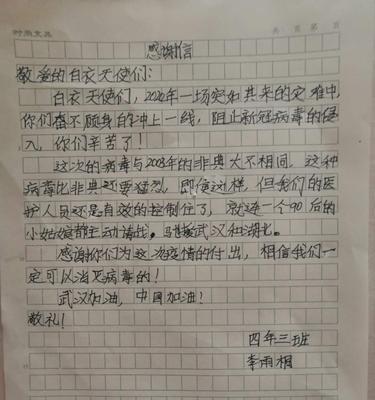 时尚文具
共 页 第 页
感谢信
敬爱的白衣天使们:
白衣天使们,2020年一场突如其来的灾难中,
你们奋不顾身的冲上一线,阻止新冠病毒的侵
入,你们辛苦了!
这次的病毒与2003年的非典大不相同,这种
病毒比非典还要猛烈,即使这样,但我们的医
护人员还是有效的控制住了,就连一个90后的
小姑娘都主动请战。驰援武汉和湖北。
感谢你们为这次疫情的付出,相信我们一
定可以消灭病毒的!
武汉加油,中国加油!
敬礼!
四年三班
李雨桐